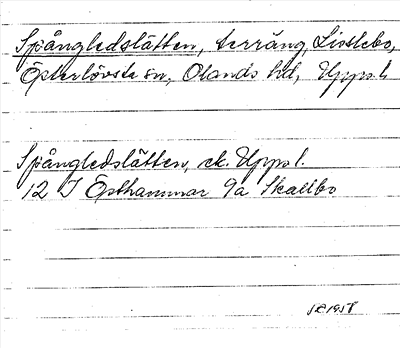 Spångledslätten, terräng, Lisslebo,
Österlövsta sn, Olands hd, Upps. l.
Spångledslätten, ek. Upps l.
12 I Östhammar 9a Skallbo
1958